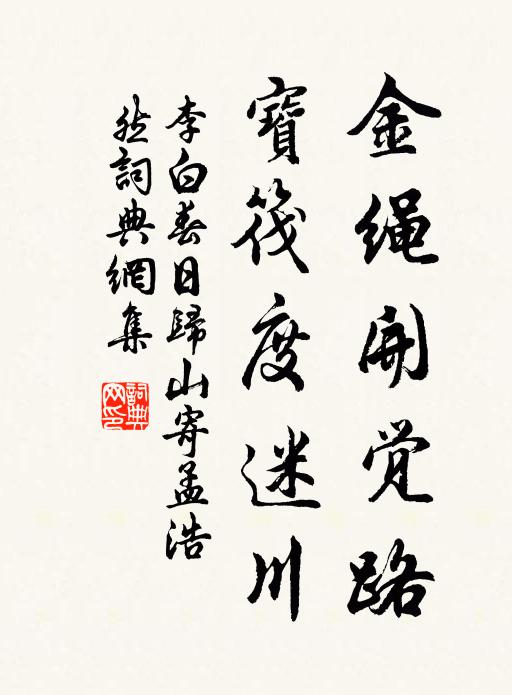 金绳開觉路
寶筏度迷川
李白春日歸山寄孟浩
然詞典網集
詞典网印